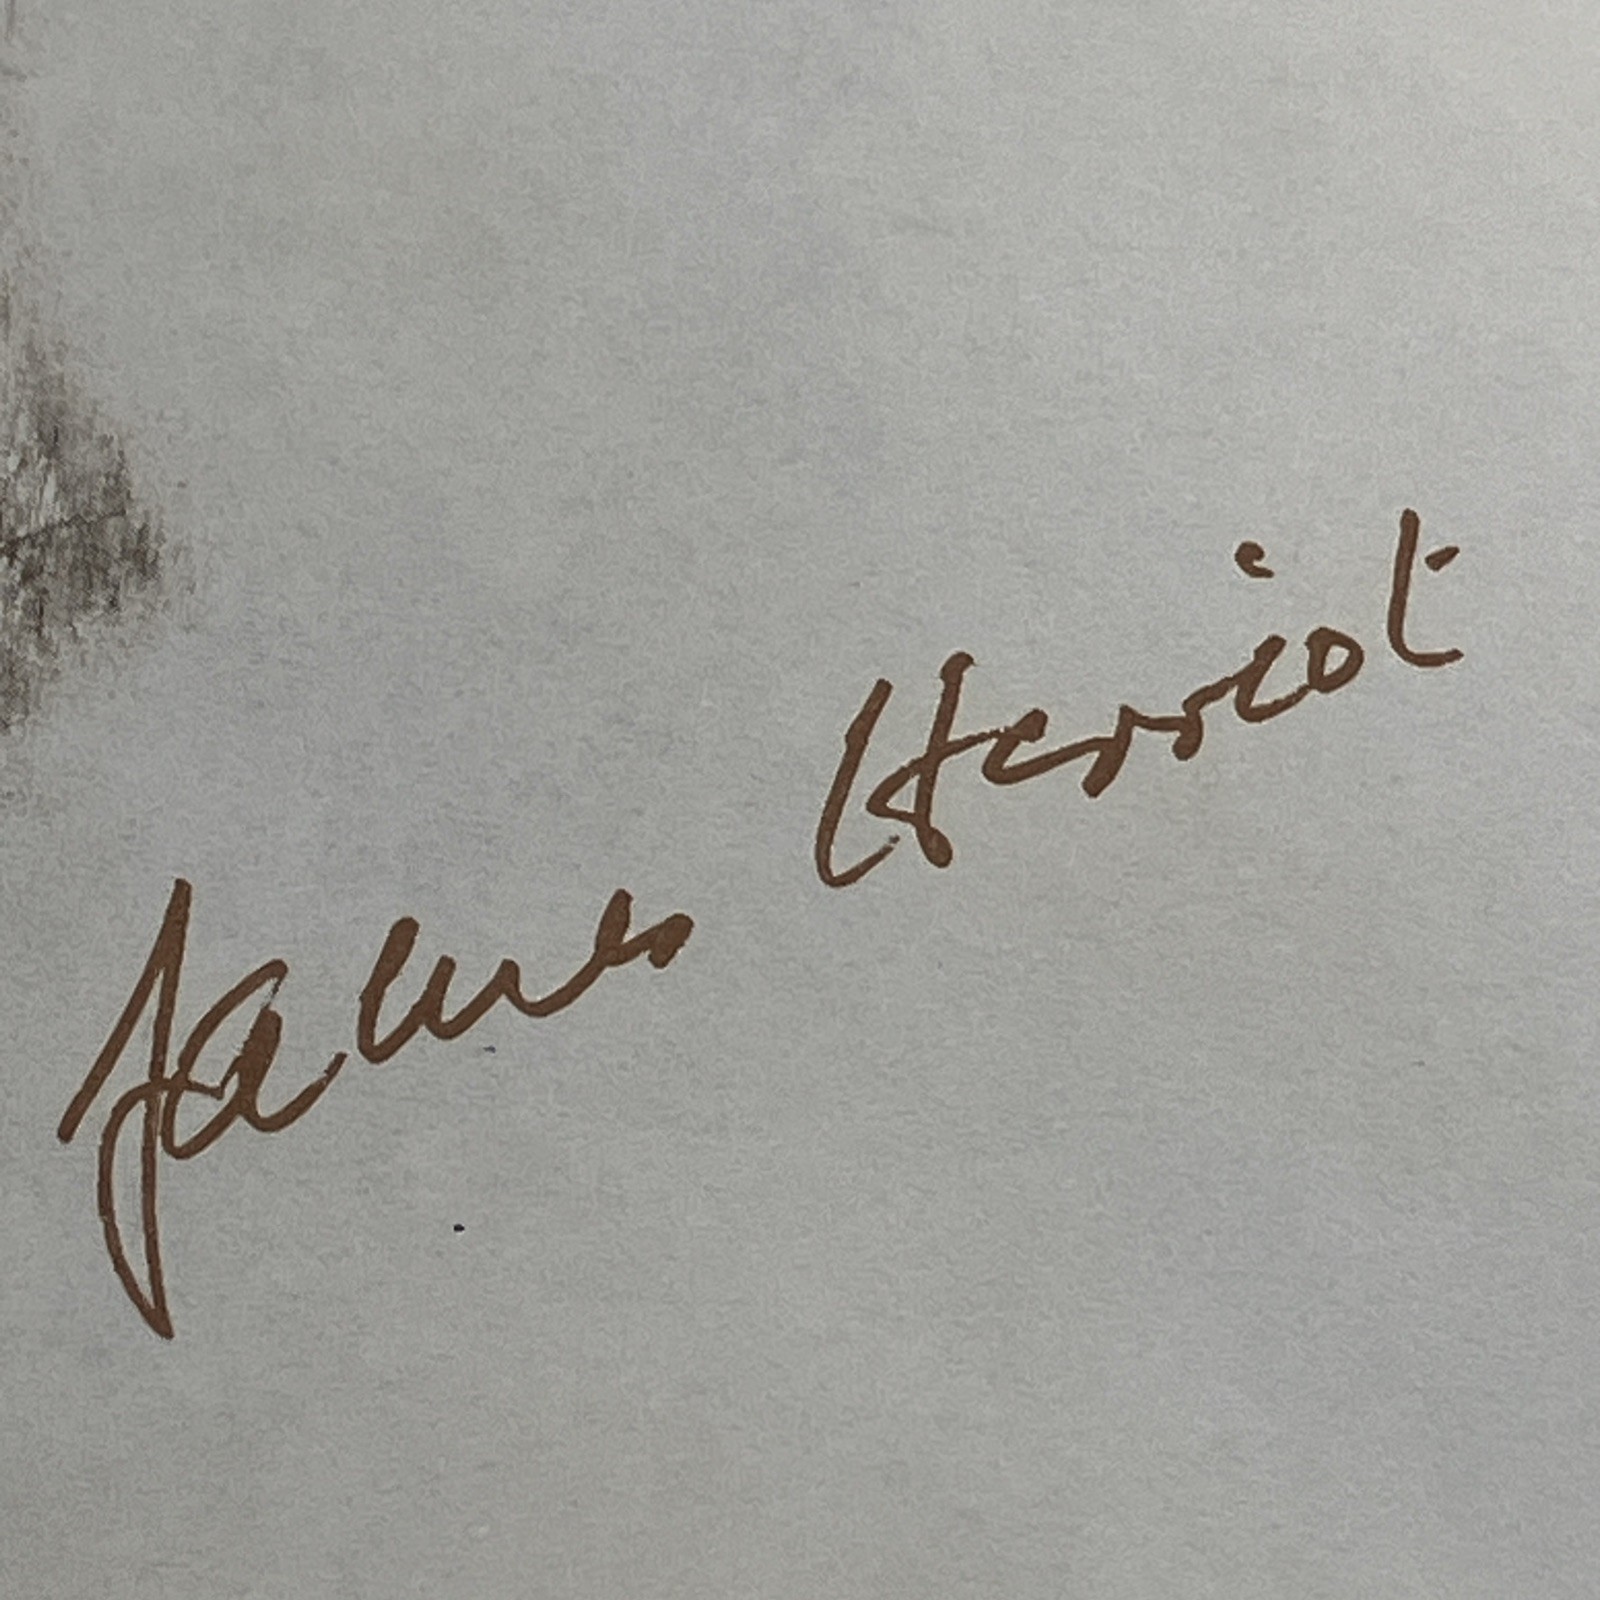 James Herriot